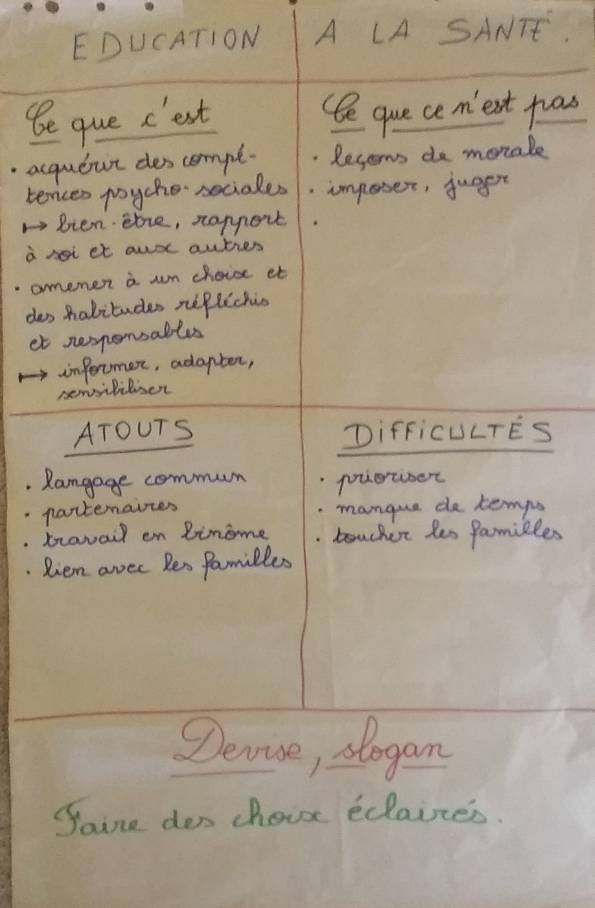 EDUCATION A LA SANTÉ.
Ce que c'est
. acquérir des compé-
tences psycho-sociales
↦ bien-être, rapport
à soi et aux autres
. amener à un choix et
des habitudes réfléchis
et responsables
↦ informer, adapter,
sensibiliser
Ce que ce n'est pas
. leçons de morale
. imposer, juger
.
ATOUTS
. langage commun
. partenaires
. travail en binôme
. lien avec les familles
DIFFICULTÉS
. prioriser
. manque de temps
. toucher les familles
Devise, slogan
Faire des choix éclairés.